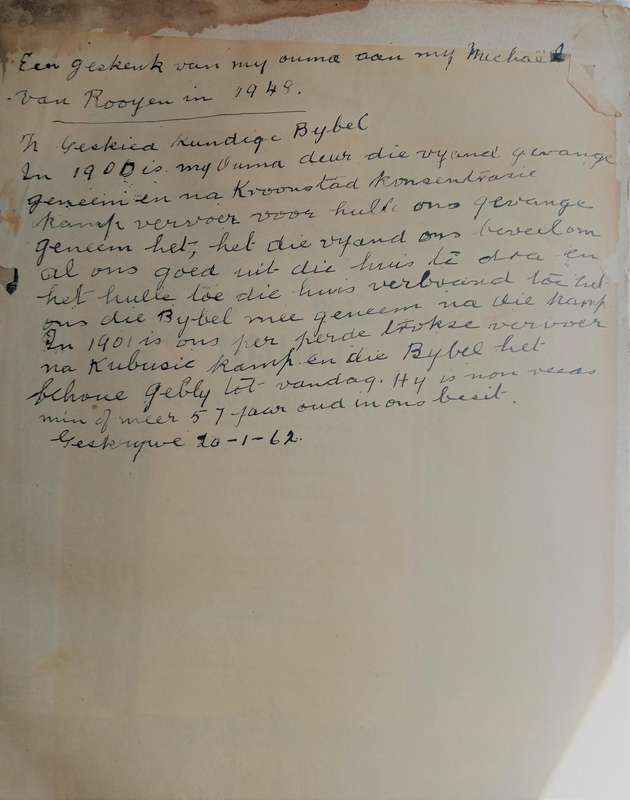 Een geskenk van my ouma aan my Michaël
van Rooyen in 1948.
'n Geskied kundige Bybel
In 1900 is my Ouma deur die vyand gevange
geneem en na Kroonstad Konsentrasie
kamp vervoer voor hulle ons gevange
geneem het, het die vyand ons beveel om
al ons goed uit die huis te dra en
het hulle toe die huis verbrand toe het
ons die Bybel mee geneem na die kamp
In 1901 is ons per perde trokse vervoer
na Kubusie kamp en die Bybel het
behoue gebly tot vandag. Hy is non reeds
min of meer 57 jaar oud in ons besit.
Geskrywe 20-1-62.